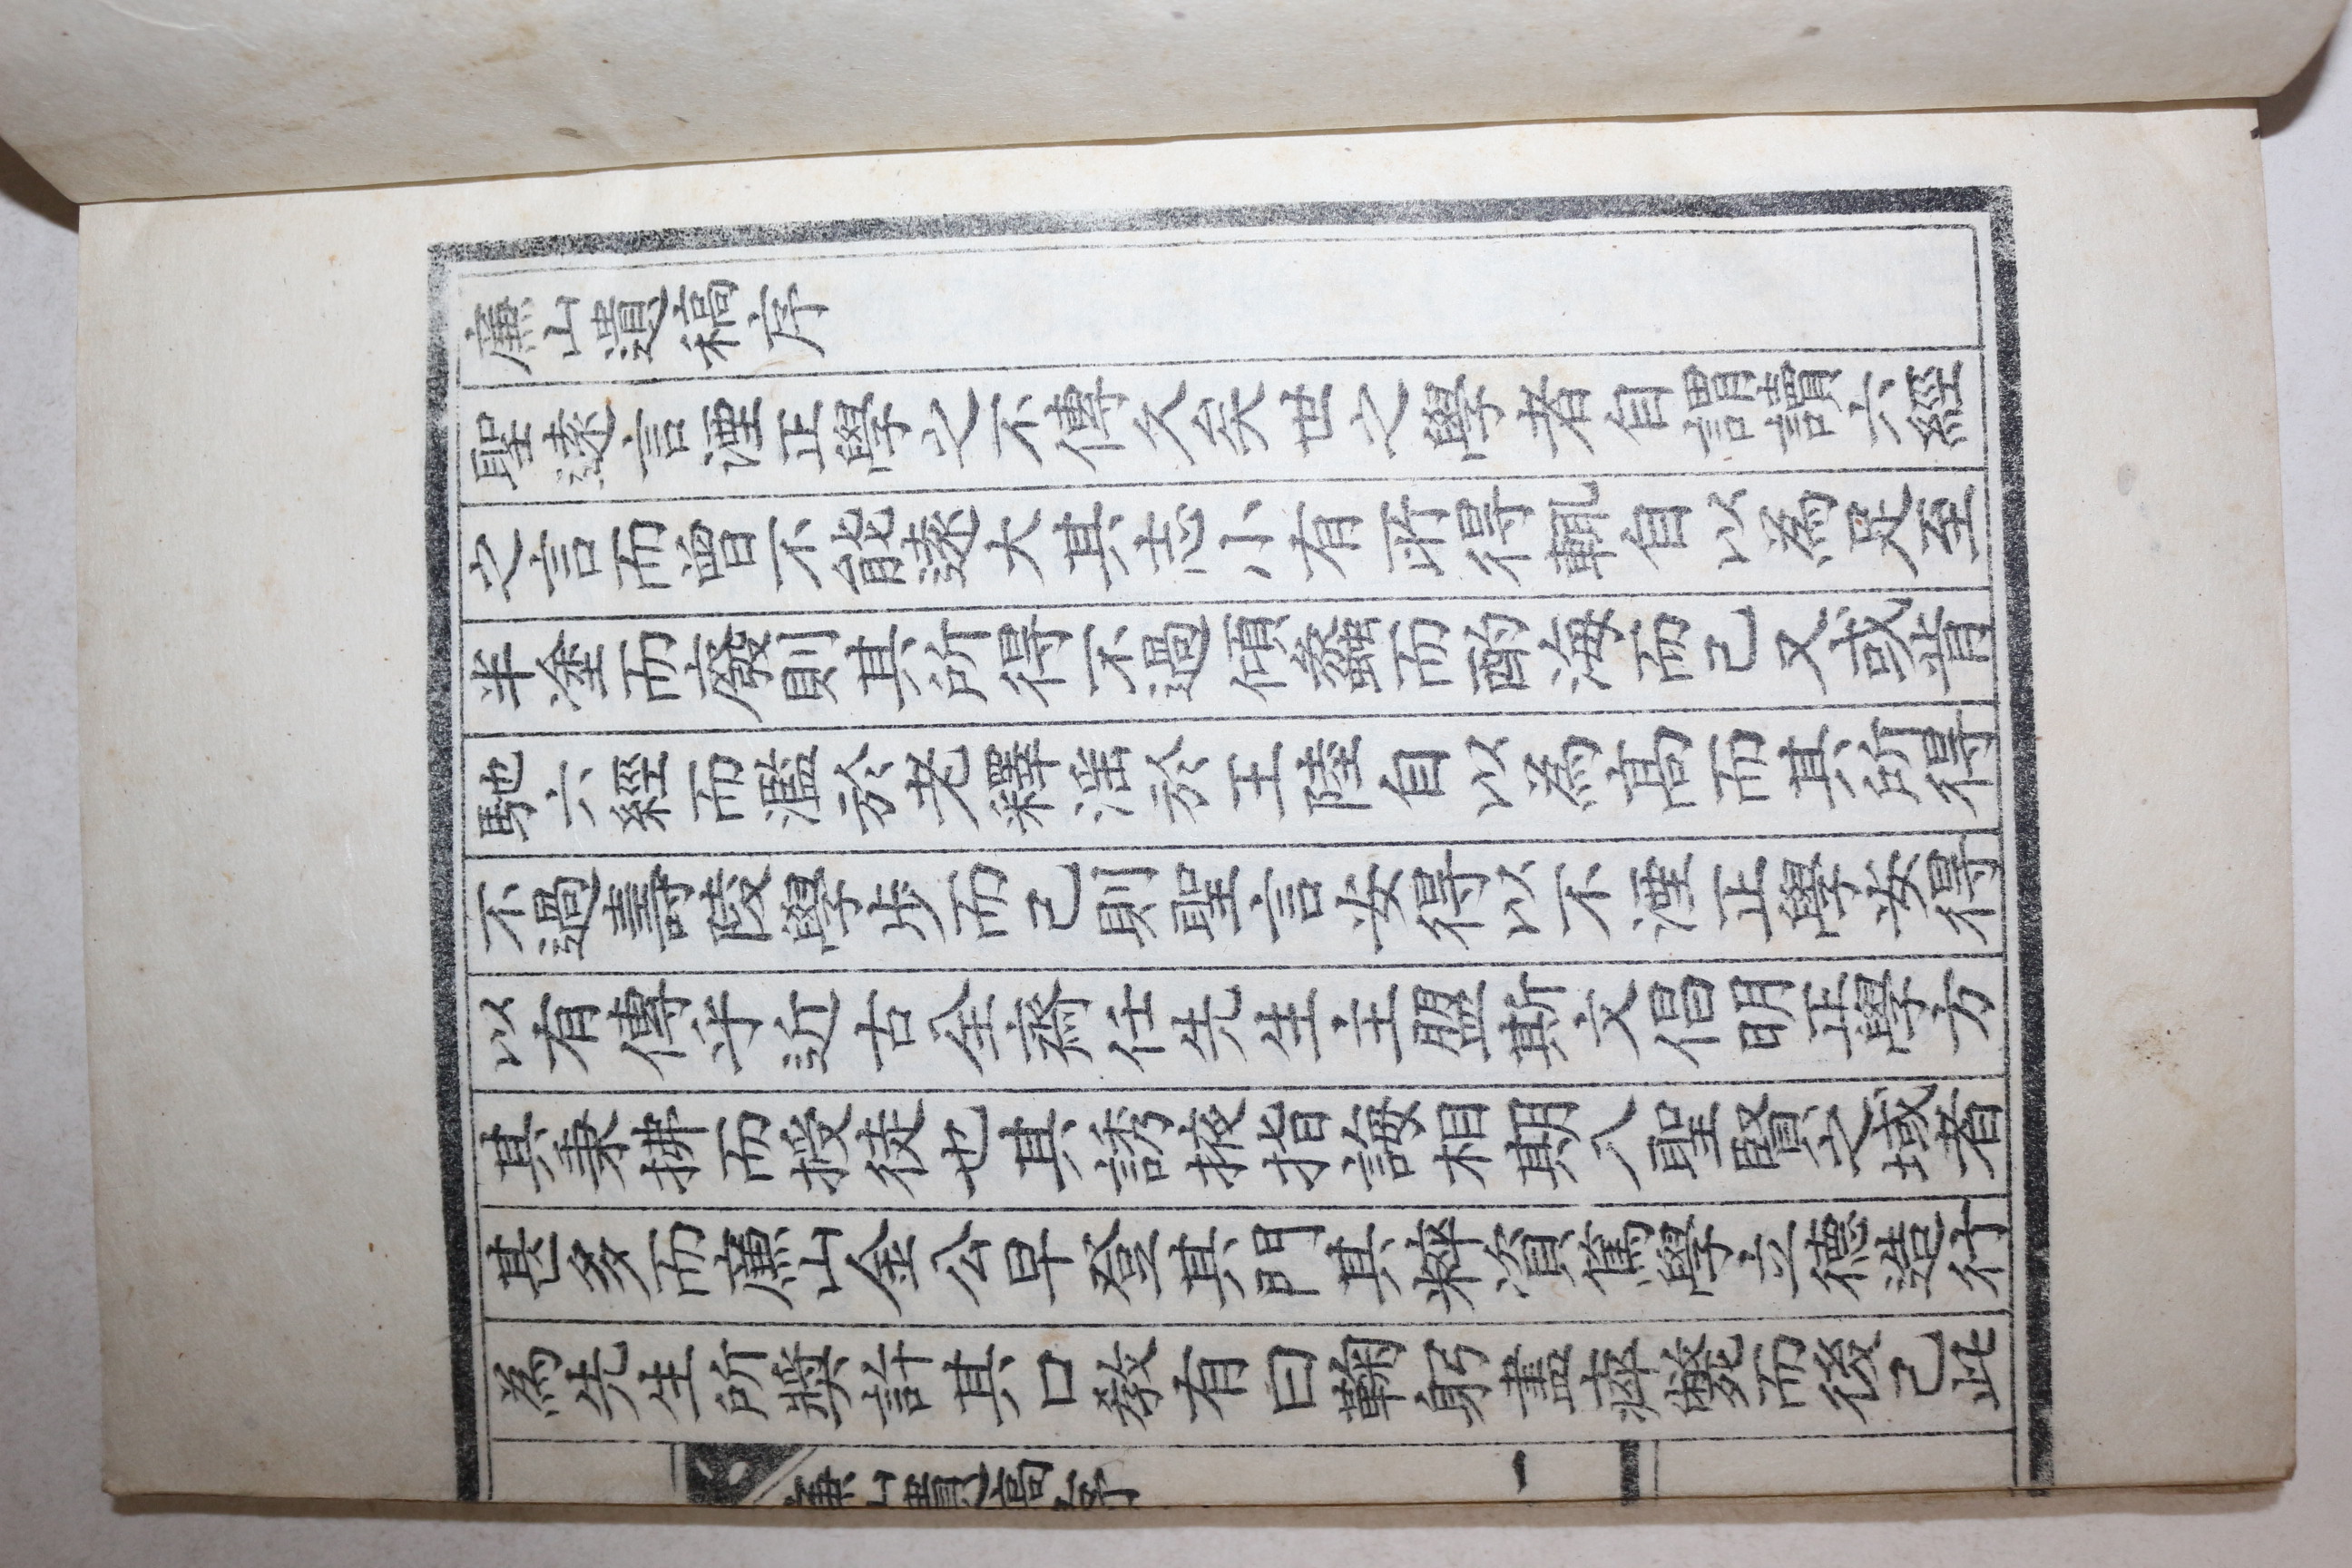 廉山遺稿序
聖遠言湮正學之不傳久矣世之學者自謂讀六經
之言而曾不能遠大其志小有所得輒自以爲足至
半途而廢則其所得不過傾蠡而酌海而已又或背
馳六經而濫於老釋淫於王陸自以爲高而其所得
不過壽陵學步而已則聖言安得以不湮正學安得
以有傳乎近古全齋任先生主盟斯文倡明正學方
其秉拂而授徒也其誘掖指誨相期入聖賢之域者
甚多而廉山金公早登其門其粹資雋學立德造行
爲先生所奬許其口發有曰鞠躬盡瘁斃而後已此
廉山遺稿序 一